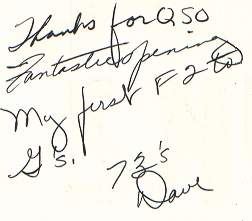 Thanks for QSO
Fantastic opening
My first F2 to
G's.
73's
Dave